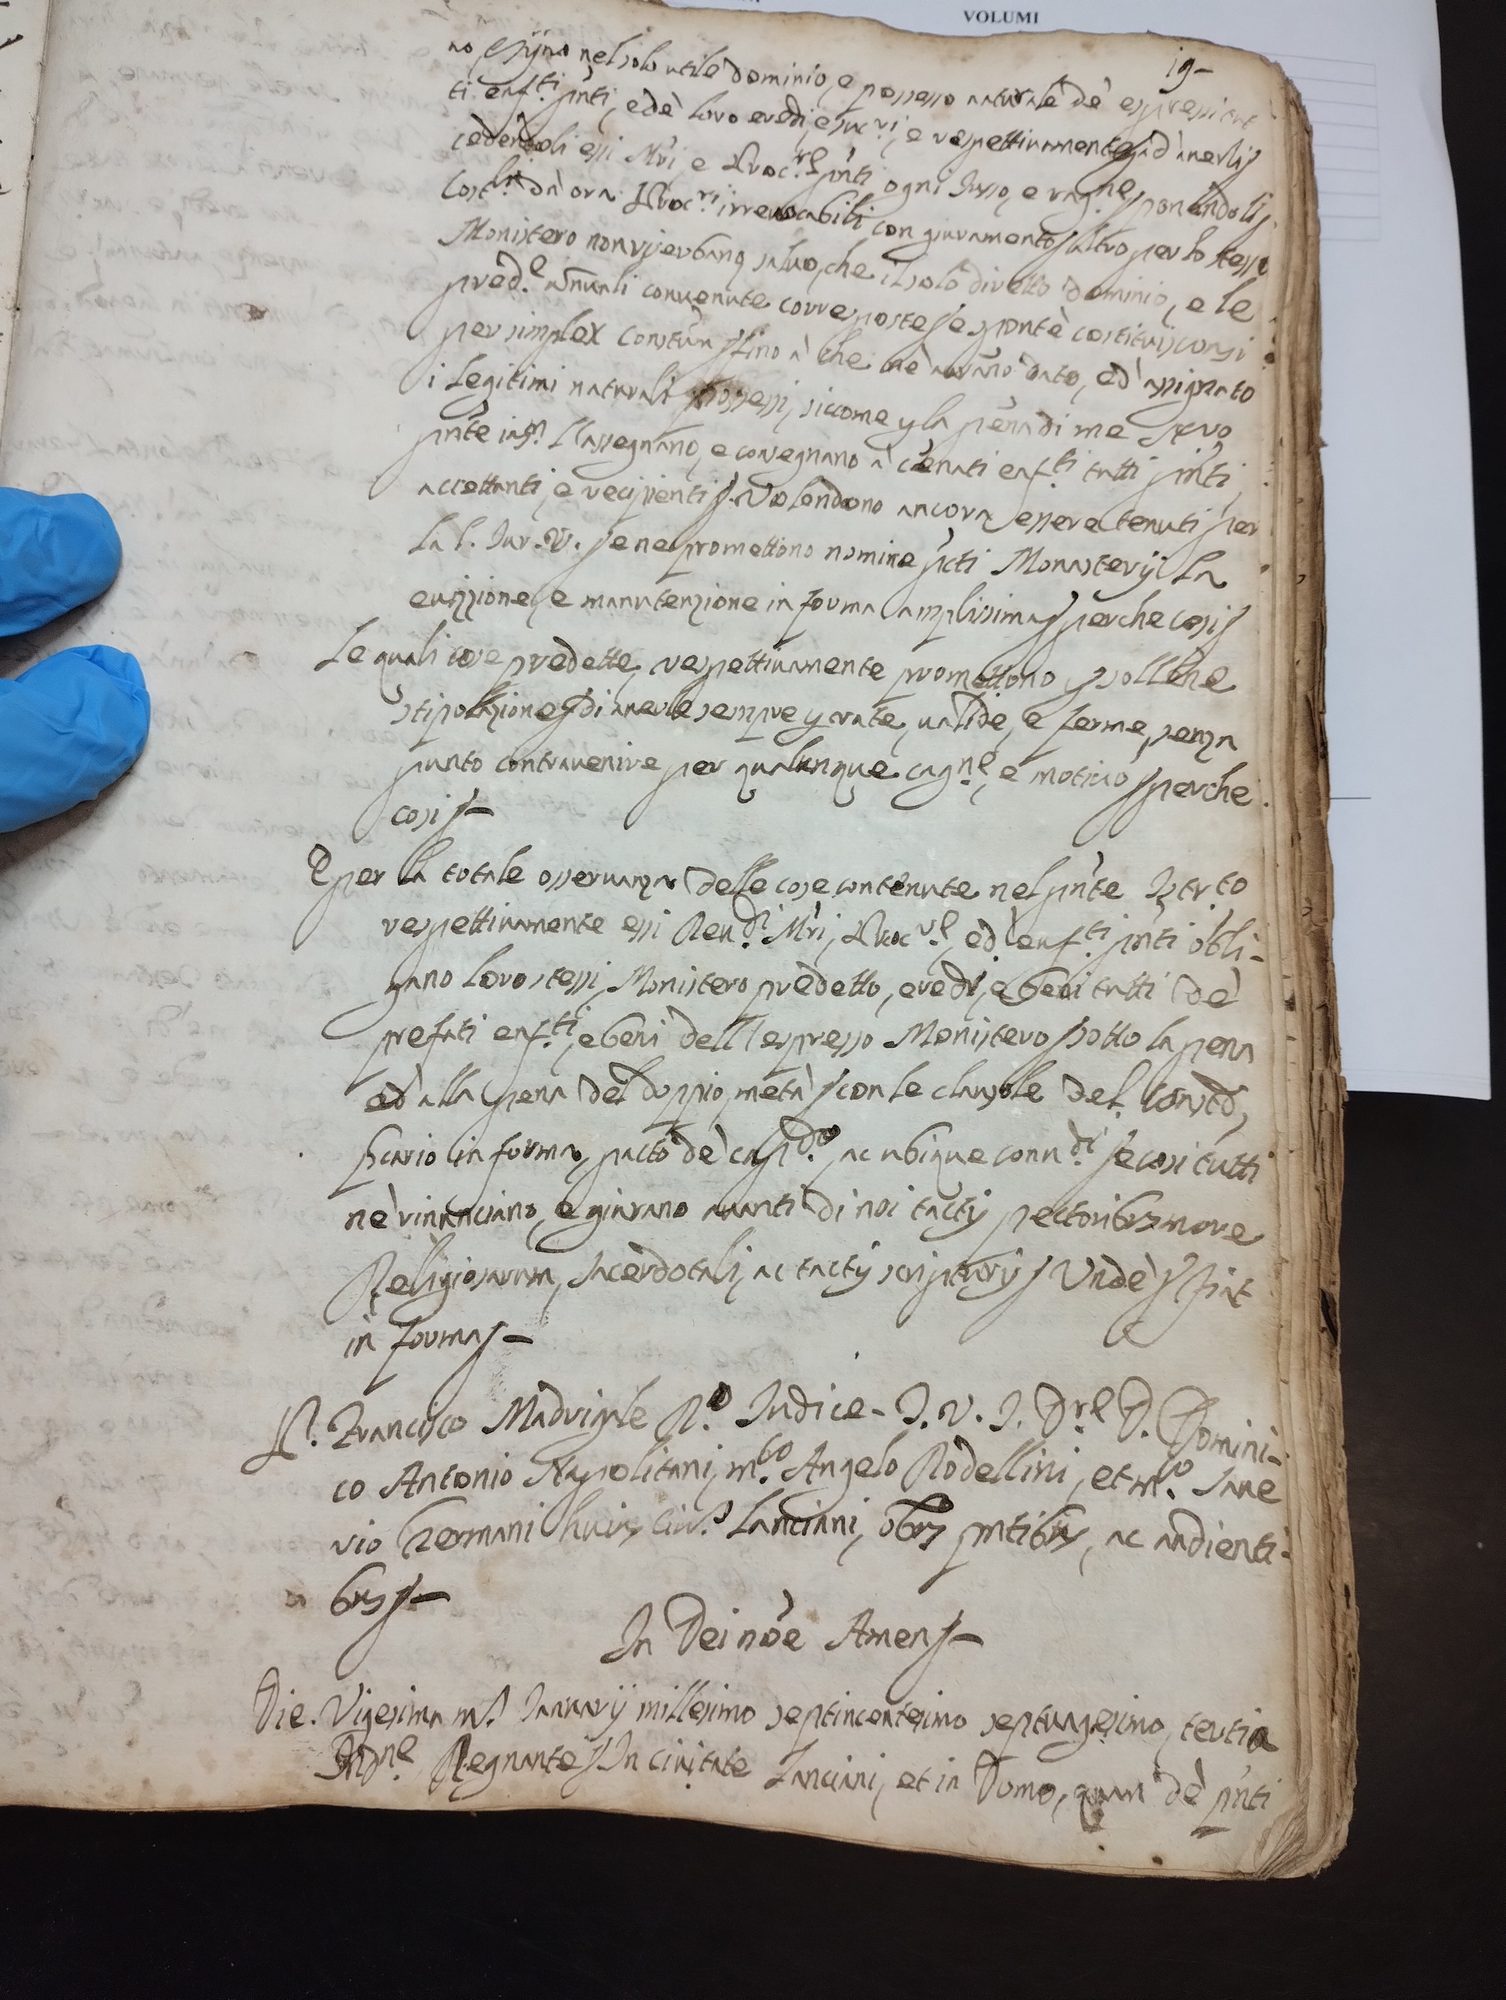 VOLUMI
19-
no, e sijno nel solo utile dominio, e possesso naturale dè espressi tut
ti enf.ti p̃nti, edè loro eredi, e suc.ri, e respettivamente ad averli
cedendoli essi M̃ri, e Proc.re p̃nti ogni Jusso, e rag.ne ponendoli
Cost.li da ora Proc.ri irrevocabili con giuramento altro per lo stesso
Monistero non riserbano, salvo, che il solo diretto dominio, e le
pred.e annuali convenute corresposte, e spontè costituisconsi
per simplex Constum sino à che nè avrãno dato, ed assignato
i legitimi naturali possessi, siccome la penadi me
p̃nte l'assegnano, e consegnano à cẽnati enf.ti tutti p̃nti,
accettanti, e recipienti. Volendono ancora essere tenuti per
La l. Jur. V. se ne promettono nomine p̃cti Monasterij la
evizzione, e manutenzione in forma amplissima perche cosi
Le quali cose predette, respettivamente promettono, soll
stipolazione di averle sempre rate, valide, e ferme, senza
punto contravenire per qualunque cag.ne, e motivo perche
cosi
E per la totale osservanza delle cose contenute nel p̃nte Istr.to
respettivamente essi Reu.di M̃ri, Proc.re, ed enf.ti p̃nti obli-
gano loro stessi, Monistero predetto, eredi, e beni tutti dè
prefati enf.ti, e beni dell'espresso Monistero sotto la pena
ed alla pena del doppio, metà con le clausole del Constõ,
p̃cario in forma, pacto dè cap.do, ac ubique conu.di e cosi tutti
nè rinunciano, e giurano avanti di noi tactis pectoribus more
Religiosarum, Sacerdotali, ac tactis scripturis Undè Fiat
in forma
P. Francisco Madrigale R.o Judice - J. V. J. D.re D. Domini-
co Antonio Napolitani, m.ro Angelo Rodellini, et m.ro Janue
rio Germani huius Civ.s Lanciani, obus p̃ntibus, ac audienti-
bus
In Dei nõe Amen
Die. Vigesima m.s Januarij millesimo septincentesimo septuagesimo, tertia
Ind.ne Regnante In civitate Lanciani, et in Domo, quam dè p̃nti